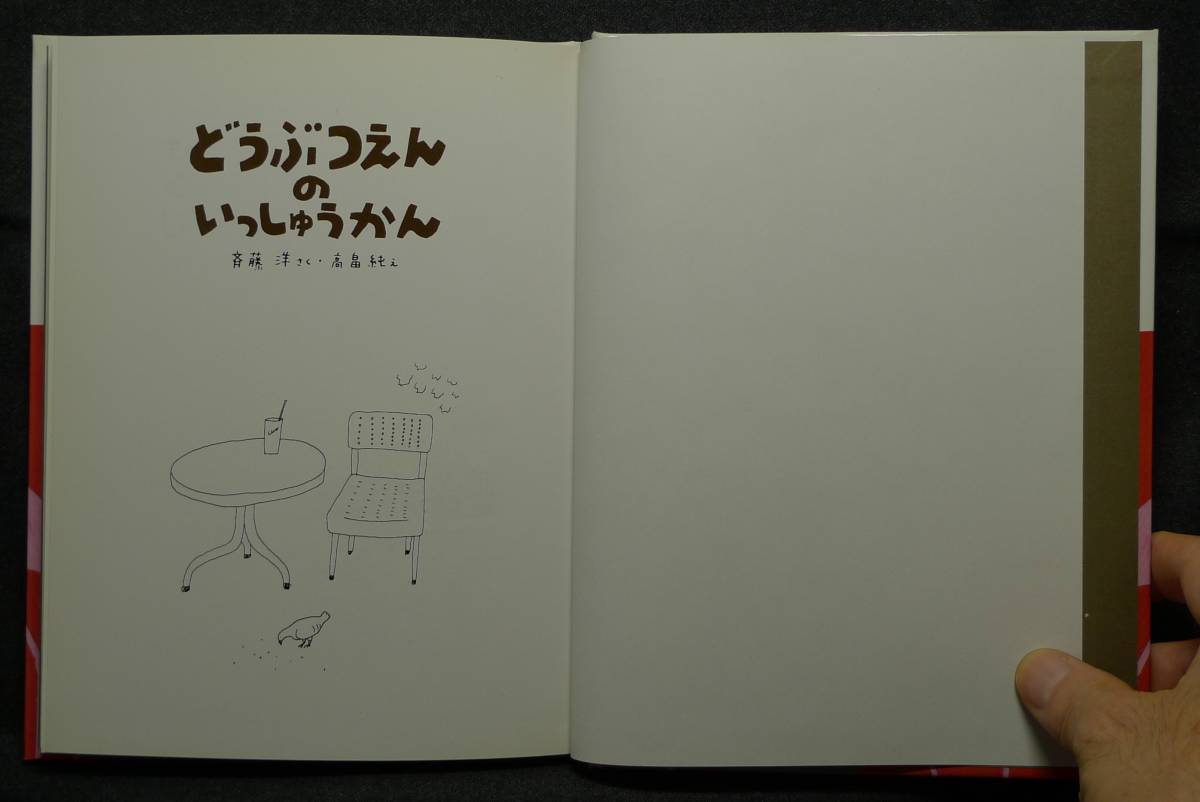 どうぶつえん
の
いっしゅうかん
斉藤 洋さく・高畠純え